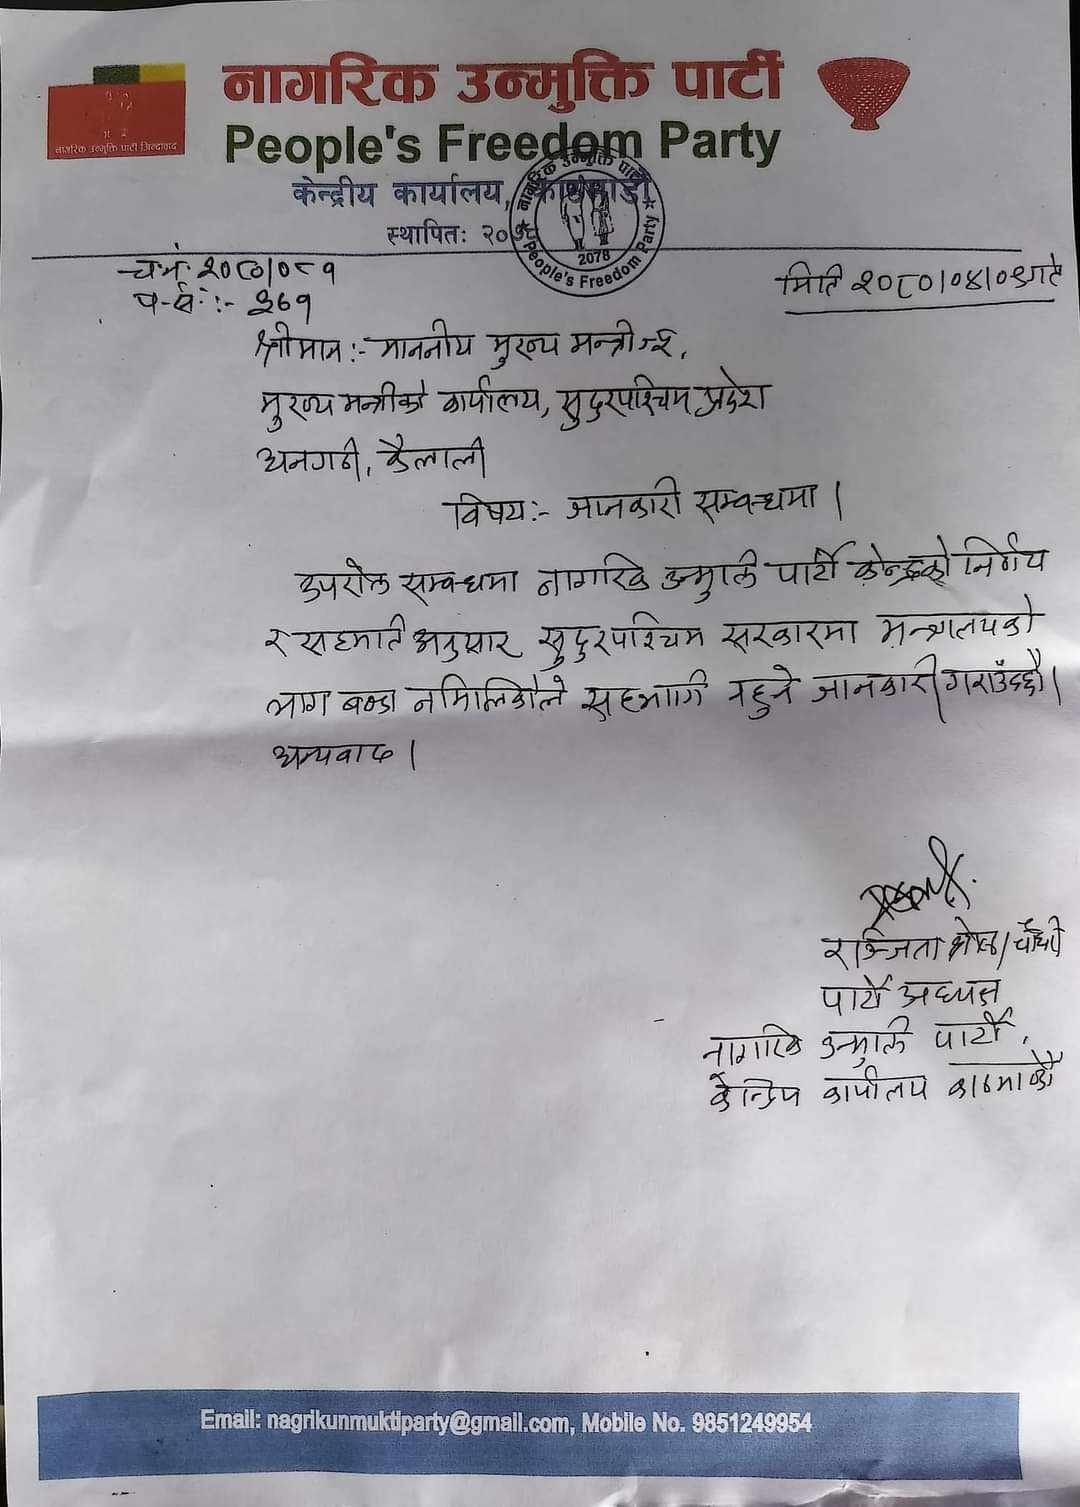 नागरिक उन्मुक्ति पार्टी
People's Freedom Party
केन्द्रीय कार्यालय, काठमाडौं
स्थापितः २०७८
नागरिक उन्मुक्ति पार्टी जिन्दावाद
नागरिक उन्मुक्ति पार्टी
2078
People's Freedom Party
च.नं. २०८०/०८१
प.सं.:- ३६१
मिति २०८०/०४/०९ गते
श्रीमान :- माननीय मुख्य मन्त्रीज्यू,
मुख्य मन्त्रीको कार्यालय, सुदुरपश्चिम प्रदेश
धनगढी, कैलाली
विषय:- जानकारी सम्वन्धमा ।
उपरोक्त सम्वन्धमा नागरिक उन्मुक्ति पार्टी केन्द्रको निर्णय
र सहमति अनुसार सुदुरपश्चिम सरकारमा मन्त्रालयको
भाग बण्डा नमिलेकोले सहभागी नहुने जानकारी गराउँदछौ ।
धन्यवाद ।
रञ्जिता श्रेष्ठ/चौधरी
पार्टी अध्यक्ष
नागरिक उन्मुक्ति पार्टी,
केन्द्रिय कार्यालय काठमाडौं
Email: nagrikunmuktiparty@gmail.com, Mobile No. 9851249954